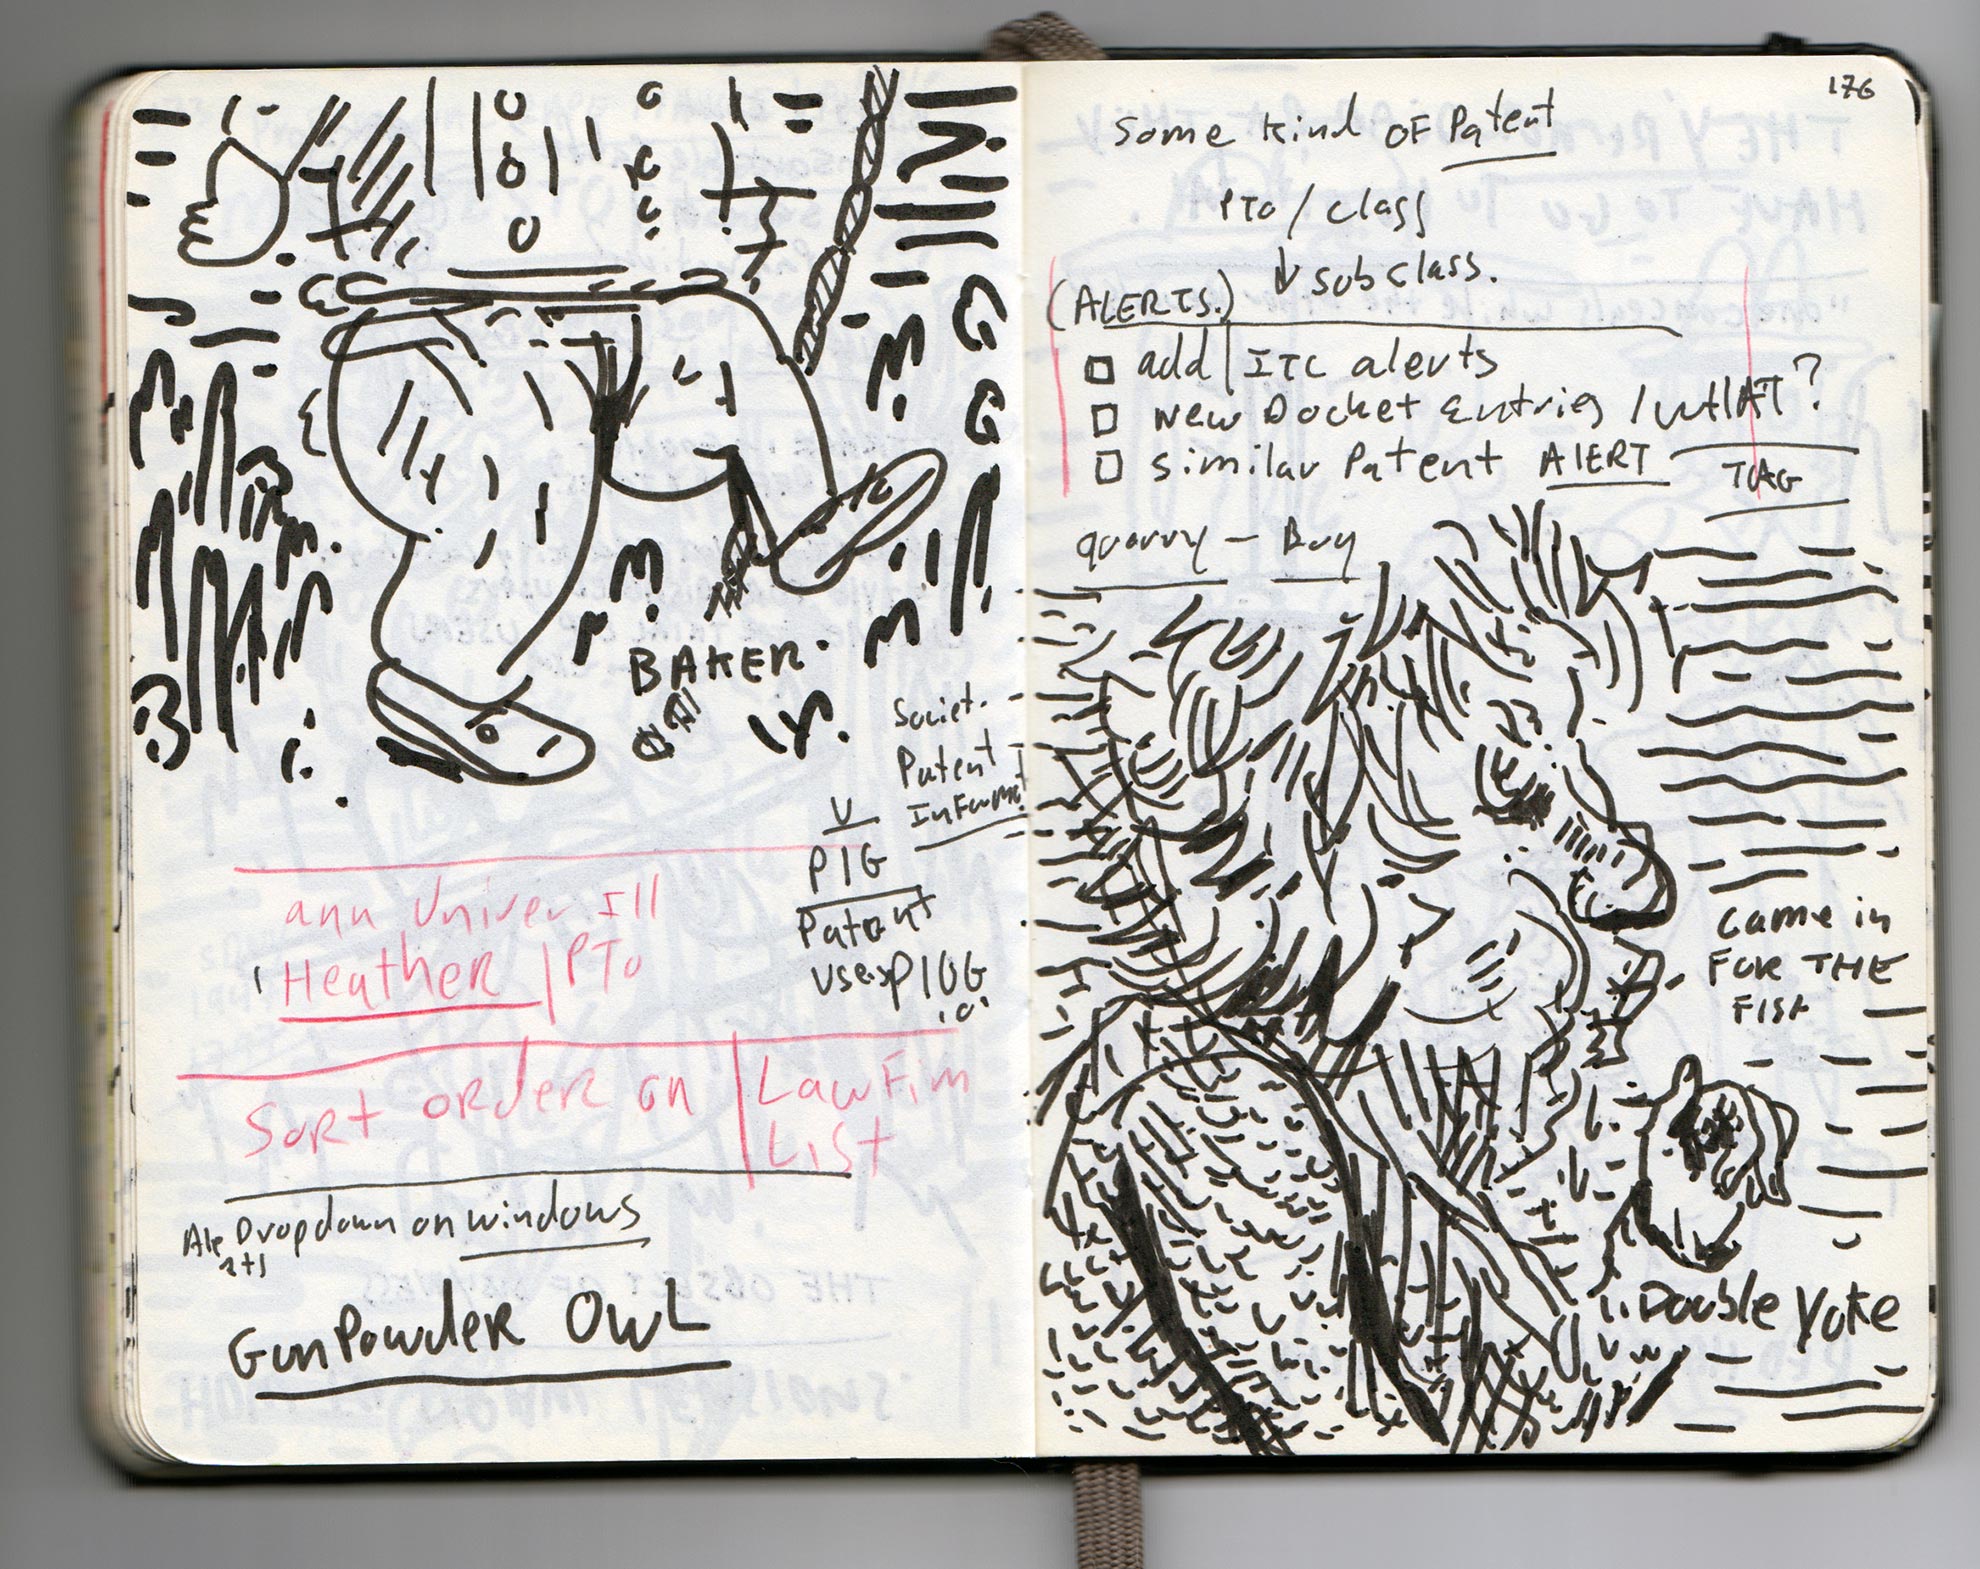 BAKER.
Societ.
Patent
Informat
V
PIG
Patent
uses PIUG
ann Univer Ill
Heather | PTO
Sort order on | Law Firm
List
Dropdown on windows
GunPowder OWL
176
Some kind OF Patent
PTO / class
subclass.
(ALERTS.)
add | ITC alerts
New Docket Entries / WHAT?
similar Patent AlERT
TAG
quarry - Buy
came in
FOR THE
FISH
Double Yoke